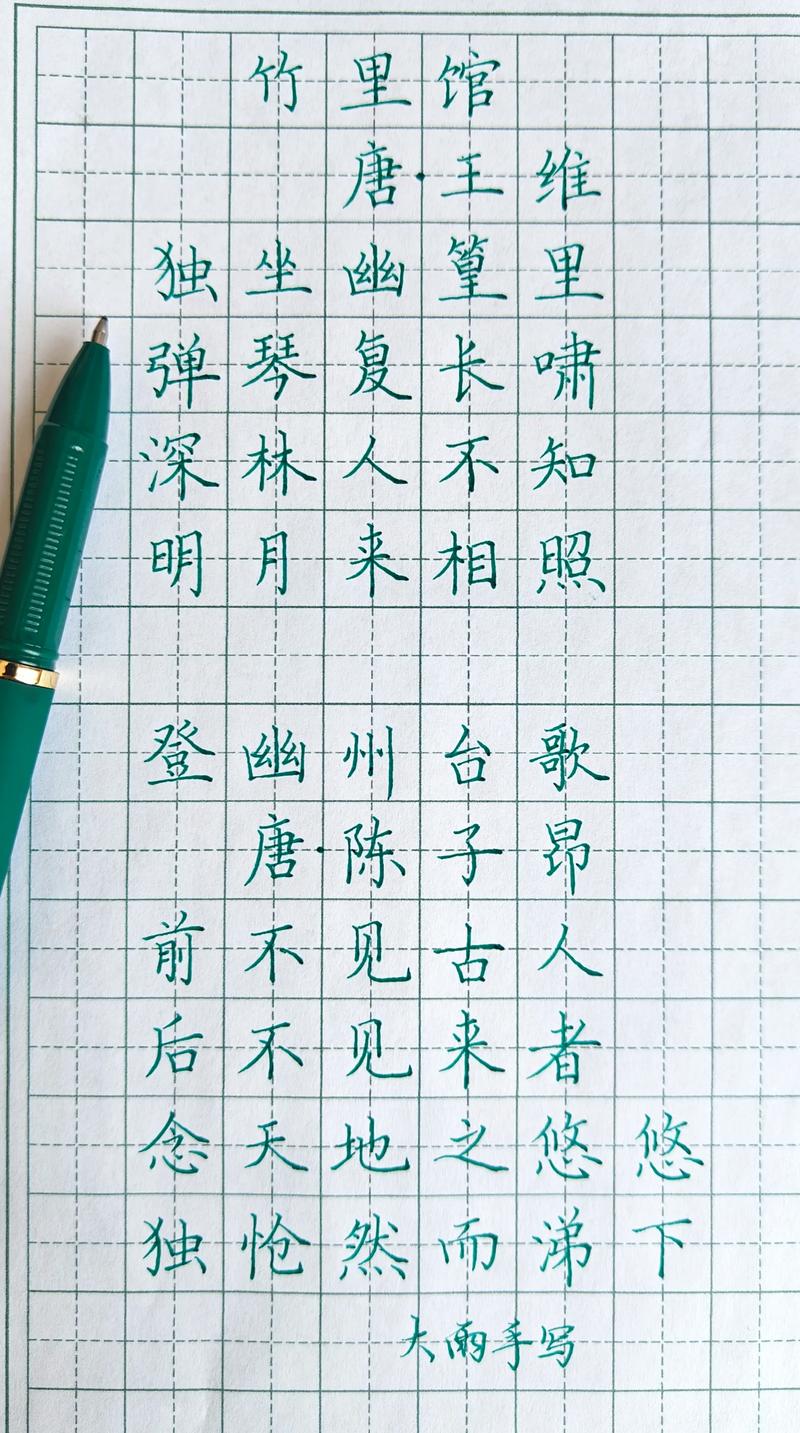 竹里馆
唐·王维
独坐幽篁里
弹琴复长啸
深林人不知
明月来相照
登幽州台歌
唐·陈子昂
前不见古人
后不见来者
念天地之悠悠
独怆然而涕下
大雨手写